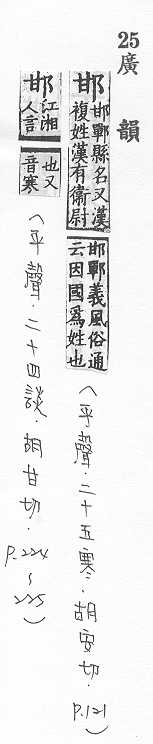 25廣韻
邯 邯鄲縣名又漢複姓漢有衛尉邯鄲義風俗通云因國爲姓也(平聲．二十五寒．胡安切．P.121)
邯 江湘人言也又音寒(平聲．二十四談．胡甘切．P.224~225)